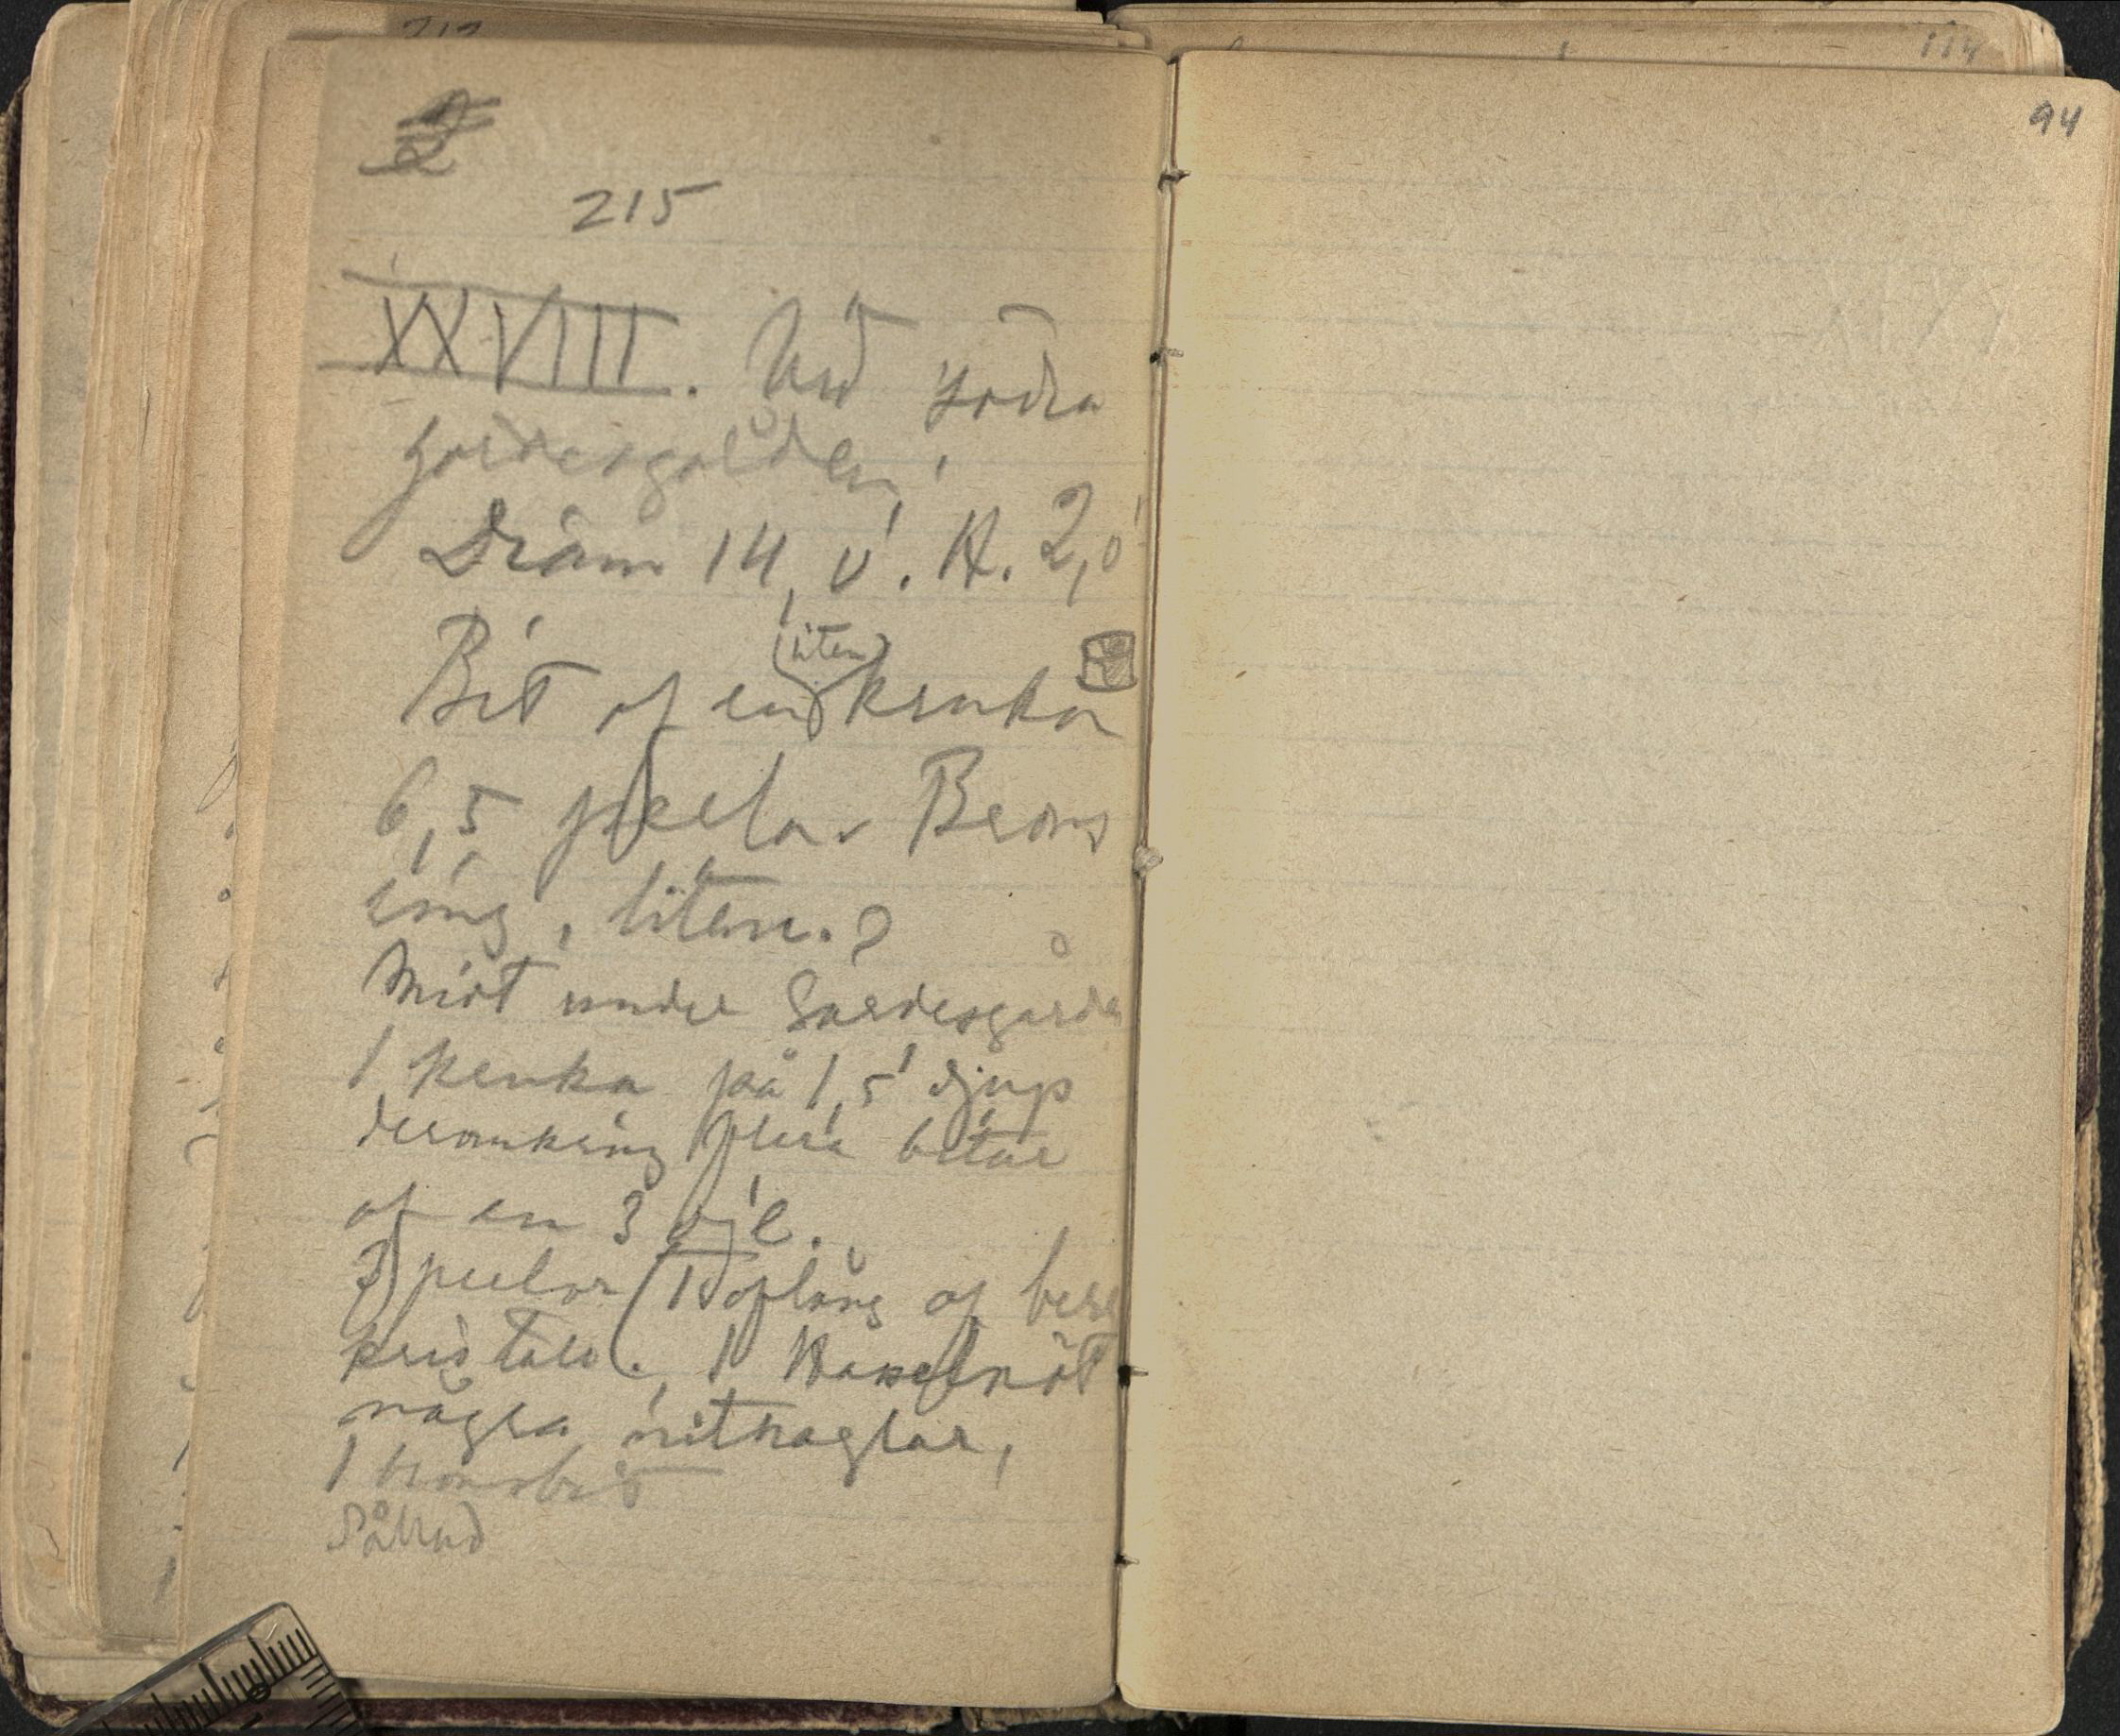 215
XXVIII. Vid södra
gärdesgården,
Diam 14,0'. H. 2,0'
Bit af en (liten) kruka
6,5 perlor Brons
ring, liten.
Midt under Gärdesgården
1 kruka på 1,5' djup
deromkring flera bitar
af en 3
perlor (1 aflång af berg
kristall. 1 Hasselnöt
några nitnaglar,
1 bronsbit
94